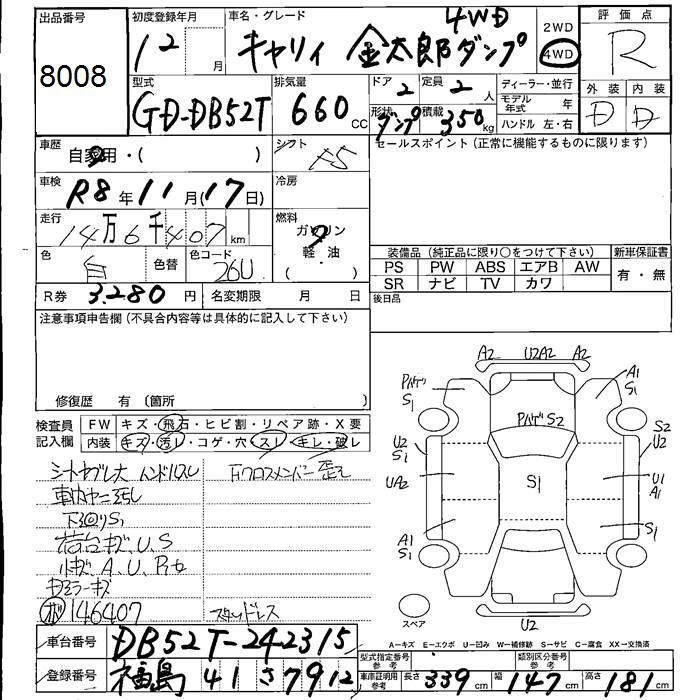 出品番号 初度登録年月 車名・グレード 評価点
8008 12月 キャリィ 金太郎ダンプ 4WD 2WD 4WD R
型式 排気量 ドア 定員 ディーラー・並行 外装 内装
GD-DB52T 660cc 2 2人 モデル年式 年 D D
形状 ダンプ 積載 350kg ハンドル 左・右
車歴 自家用・( ) シフト F5 セールスポイント (正常に機能するものに限ります)
車検 R8年11月(17日) 冷房
走行 14万6千407km 燃料 ガソリン・軽油 ( )
色 白 色替 色コード 26U 装備品 (純正品に限り○をつけて下さい) 新車保証書
PS PW ABS エアB AW 有・無
SR ナビ TV カワ
R券 3,280円 名変期限 月 日 後日品
注意事項申告欄 (不具合内容等は具体的に記入して下さい)
修復歴 有 〔箇所
検査員記入欄 FW キズ・飛石・ヒビ割・リペア跡・X要
内装 キズ・汚レ・コゲ・穴・スレ・キレ・破レ
シートヤブレ大 ハンドルスレ
車内ヤニ汚れ
下回りS1
荷台キズ、U、S
小キズ、A、U、
ミラーキズ
146407 スタッドレス
A2 U2A2 A2
S1 A1 S1
S2
U2 S1 S2 U2
UA2 S1 U1 A1
A1 S1 S1
スペア U2
A-キズ E-エクボ U-凹み W-補修跡 S-サビ C-腐食 XX-交換済
車台番号 DB52T-242315
型式指定番号 参考 類別区分番号 参考
登録番号 福島 41 さ 7912
車庫証明用 参考 長さ 339cm 幅 147cm 高さ 181cm